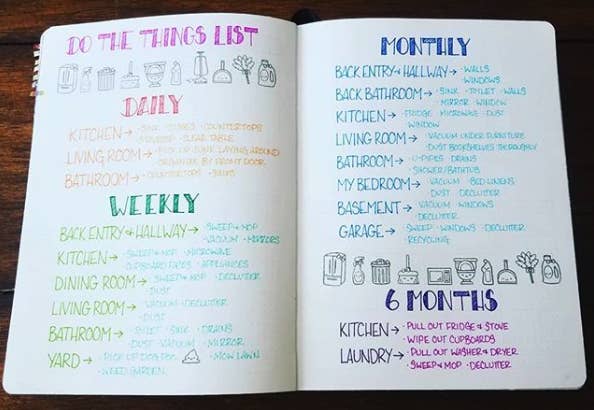 DO THE THINGS LIST
DAILY
KITCHEN → · SINK · DISHES · COUNTERTOPS
· CLEAR TABLE
LIVING ROOM → · PICK UP JUNK LAYING AROUND
· ORGANIZE BY FRONT DOOR
BATHROOM → · COUNTERTOPS · SINKS
WEEKLY
BACK ENTRY & HALLWAY → · SWEEP & MOP
· VACUUM · MIRRORS
KITCHEN → · SWEEP & MOP · MICROWAVE
· CUPBOARD FACES · APPLIANCES
DINING ROOM → · SWEEP & MOP · DECLUTTER
· DUST
LIVING ROOM → · VACUUM · DECLUTTER
· DUST
BATHROOM → · TOILET · SINK · DRAINS
· DUST · VACUUM · MIRROR
YARD → · PICK UP DOG POO · MOW LAWN
· WEED GARDEN
MONTHLY
BACK ENTRY & HALLWAY → · WALLS
· WINDOWS
BACK BATHROOM → · SINK · TOILET · WALLS
· MIRROR · WINDOW
KITCHEN → · FRIDGE · MICROWAVE · DUST
· WINDOW
LIVING ROOM → · VACUUM UNDER FURNITURE
· DUST BOOKSHELVES THOROUGHLY
BATHROOM → · U-PIPES · DRAINS
· SHOWER/BATHTUB
MY BEDROOM → · VACUUM · BED LINENS
· DUST · DECLUTTER
BASEMENT → · VACUUM · WINDOWS
· DECLUTTER
GARAGE → · SWEEP · WINDOWS · DECLUTTER
· RECYCLING
6 MONTHS
KITCHEN → · PULL OUT FRIDGE & STOVE
· WIPE OUT CUPBOARDS
LAUNDRY → · PULL OUT WASHER & DRYER
· SWEEP & MOP · DECLUTTER